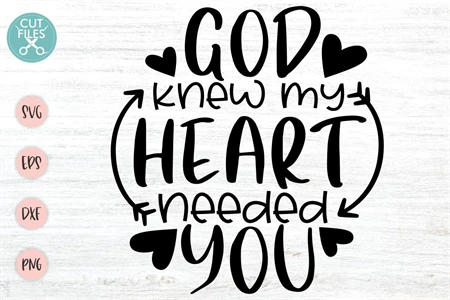 CUT
FILES
SVG
EPS
DXF
PNG
GOD
knew my
HEART
needed
YOU